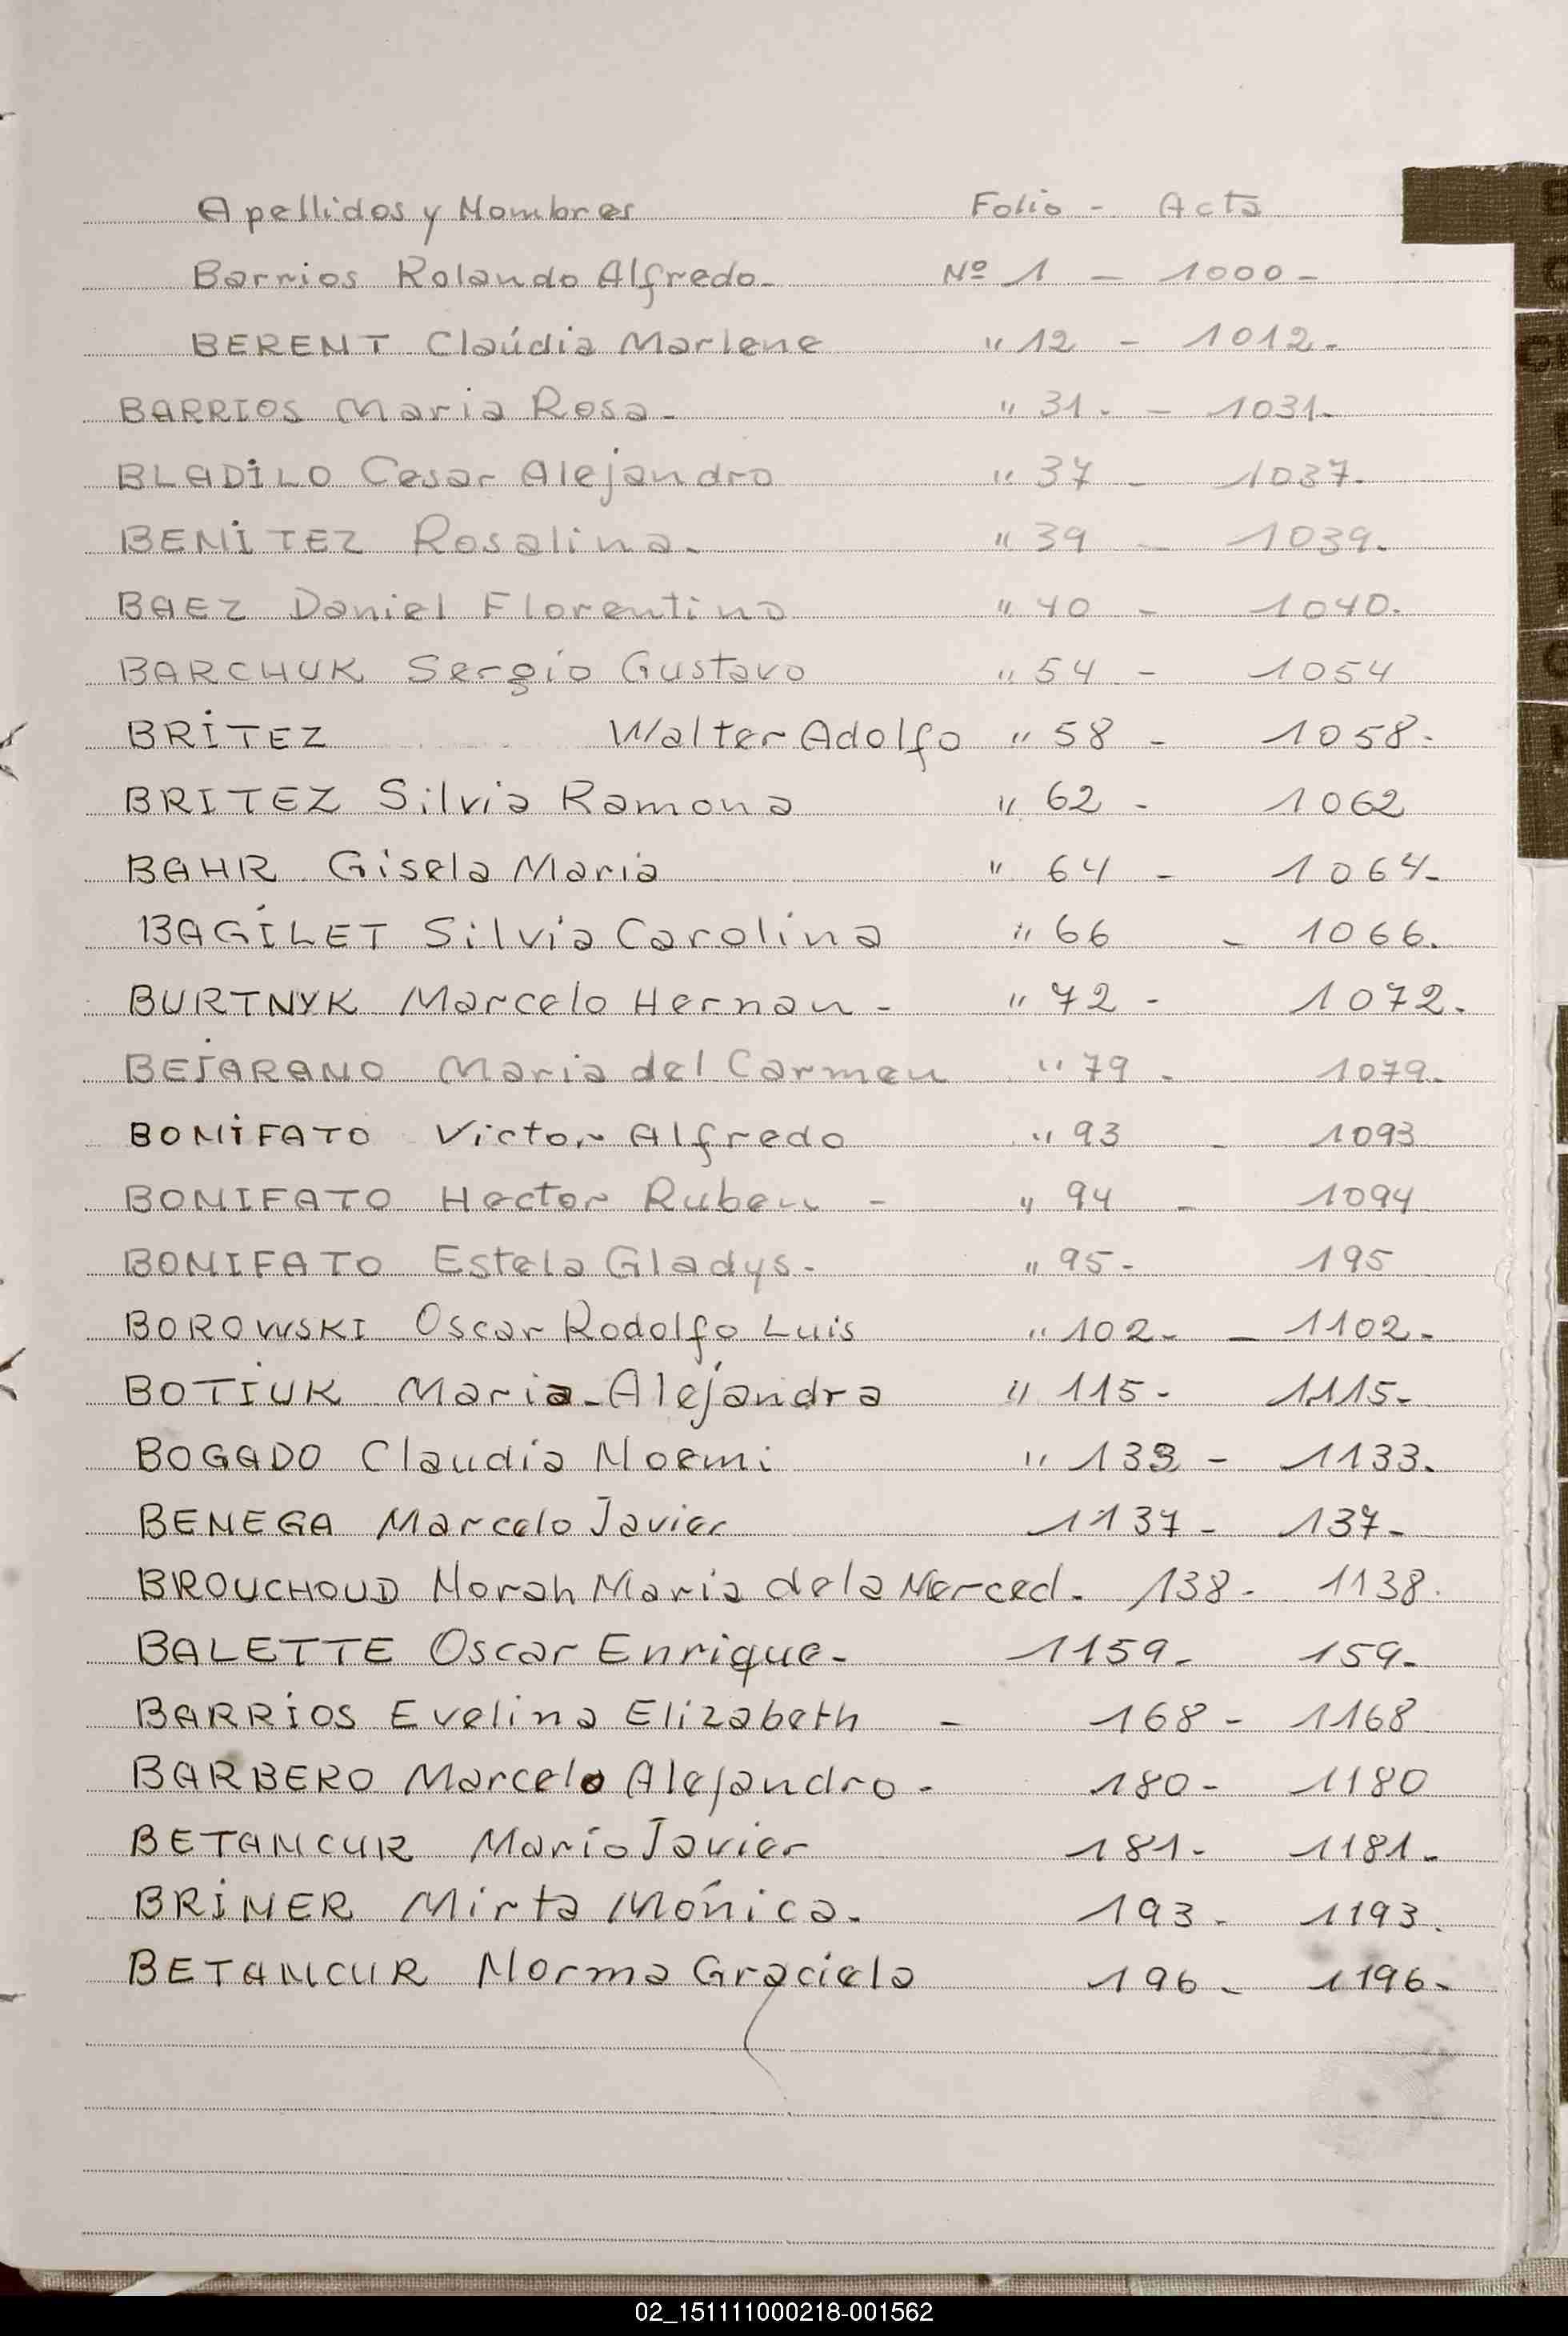 Apellidos y Nombres Folio - Acta
Barrios Rolando Alfredo. Nº 1 - 1000-
BERENT Claúdia Marlene " 12 - 1012.
BARRIOS Maria Rosa. " 31. - 1031.
BLADILO Cesar Alejandro " 37 - 1037.
BENITEZ Rosalina. " 39 - 1039.
BAEZ Daniel Florentino " 40 - 1040.
BARCHUK Sergio Gustavo " 54 - 1054
BRITEZ Walter Adolfo " 58 - 1058.
BRITEZ Silvia Ramona " 62 - 1062
BAHR Gisela Maria " 64 - 1064-
BAGILET Silvia Carolina " 66 - 1066.
BURTNYK Marcelo Hernan - " 72 - 1072.
BEJARANO Maria del Carmen " 79 - 1079.
BONIFATO Victor Alfredo " 93 - 1093
BONIFATO Hector Ruben - " 94 - 1094
BONIFATO Estela Gladys. " 95- 195
BOROWSKI Oscar Rodolfo Luis " 102- - 1102-
BOTIUK Maria-Alejandra " 115- 1115-
BOGADO Claudia Noemi " 133 - 1133.
BENEGA Marcelo Javier 1137- 137-
BROUCHOUD Norah Maria de la Merced. 138- 1138.
BALETTE Oscar Enrique- 1159- 159-
BARRIOS Evelina Elizabeth - 168 - 1168
BARBERO Marcelo Alejandro - 180- 1180
BETANCUR Mario Javier 181- 1181-
BRINER Mirta Mónica. 193- 1193.
BETANCUR Norma Graciela 196- 1196-
02_151111000218-001562